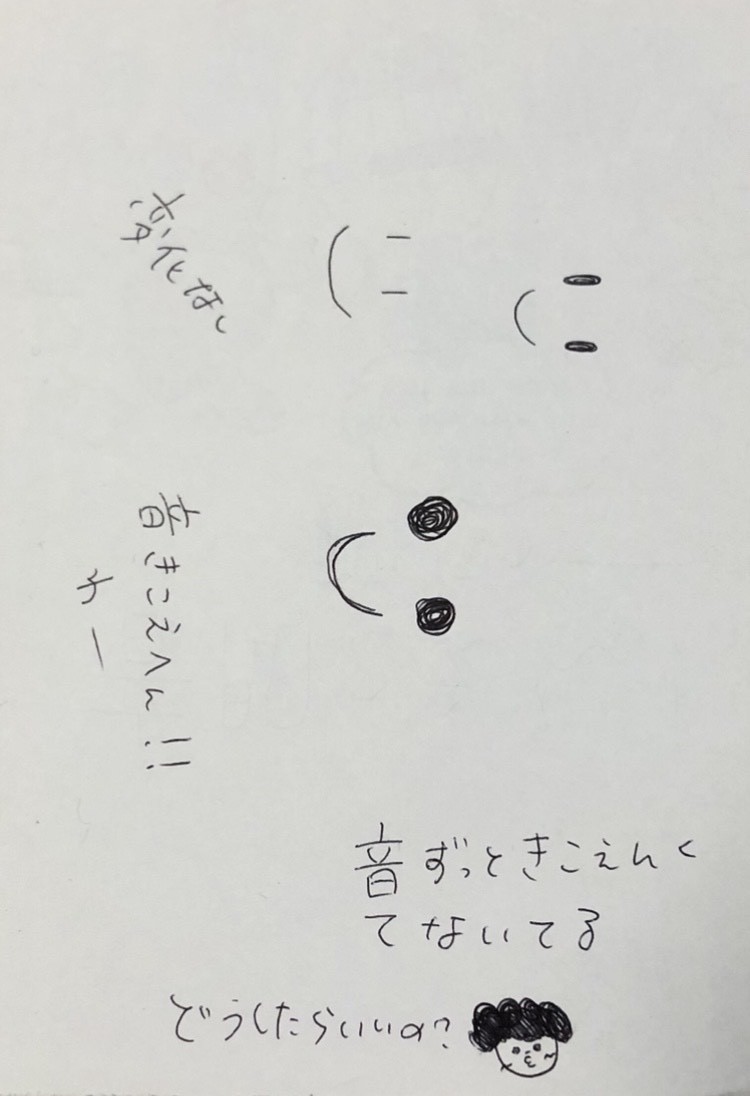 変化なし
音きこえへん!!
音ずっときこえんく
てないてる
どうしたらいいの?